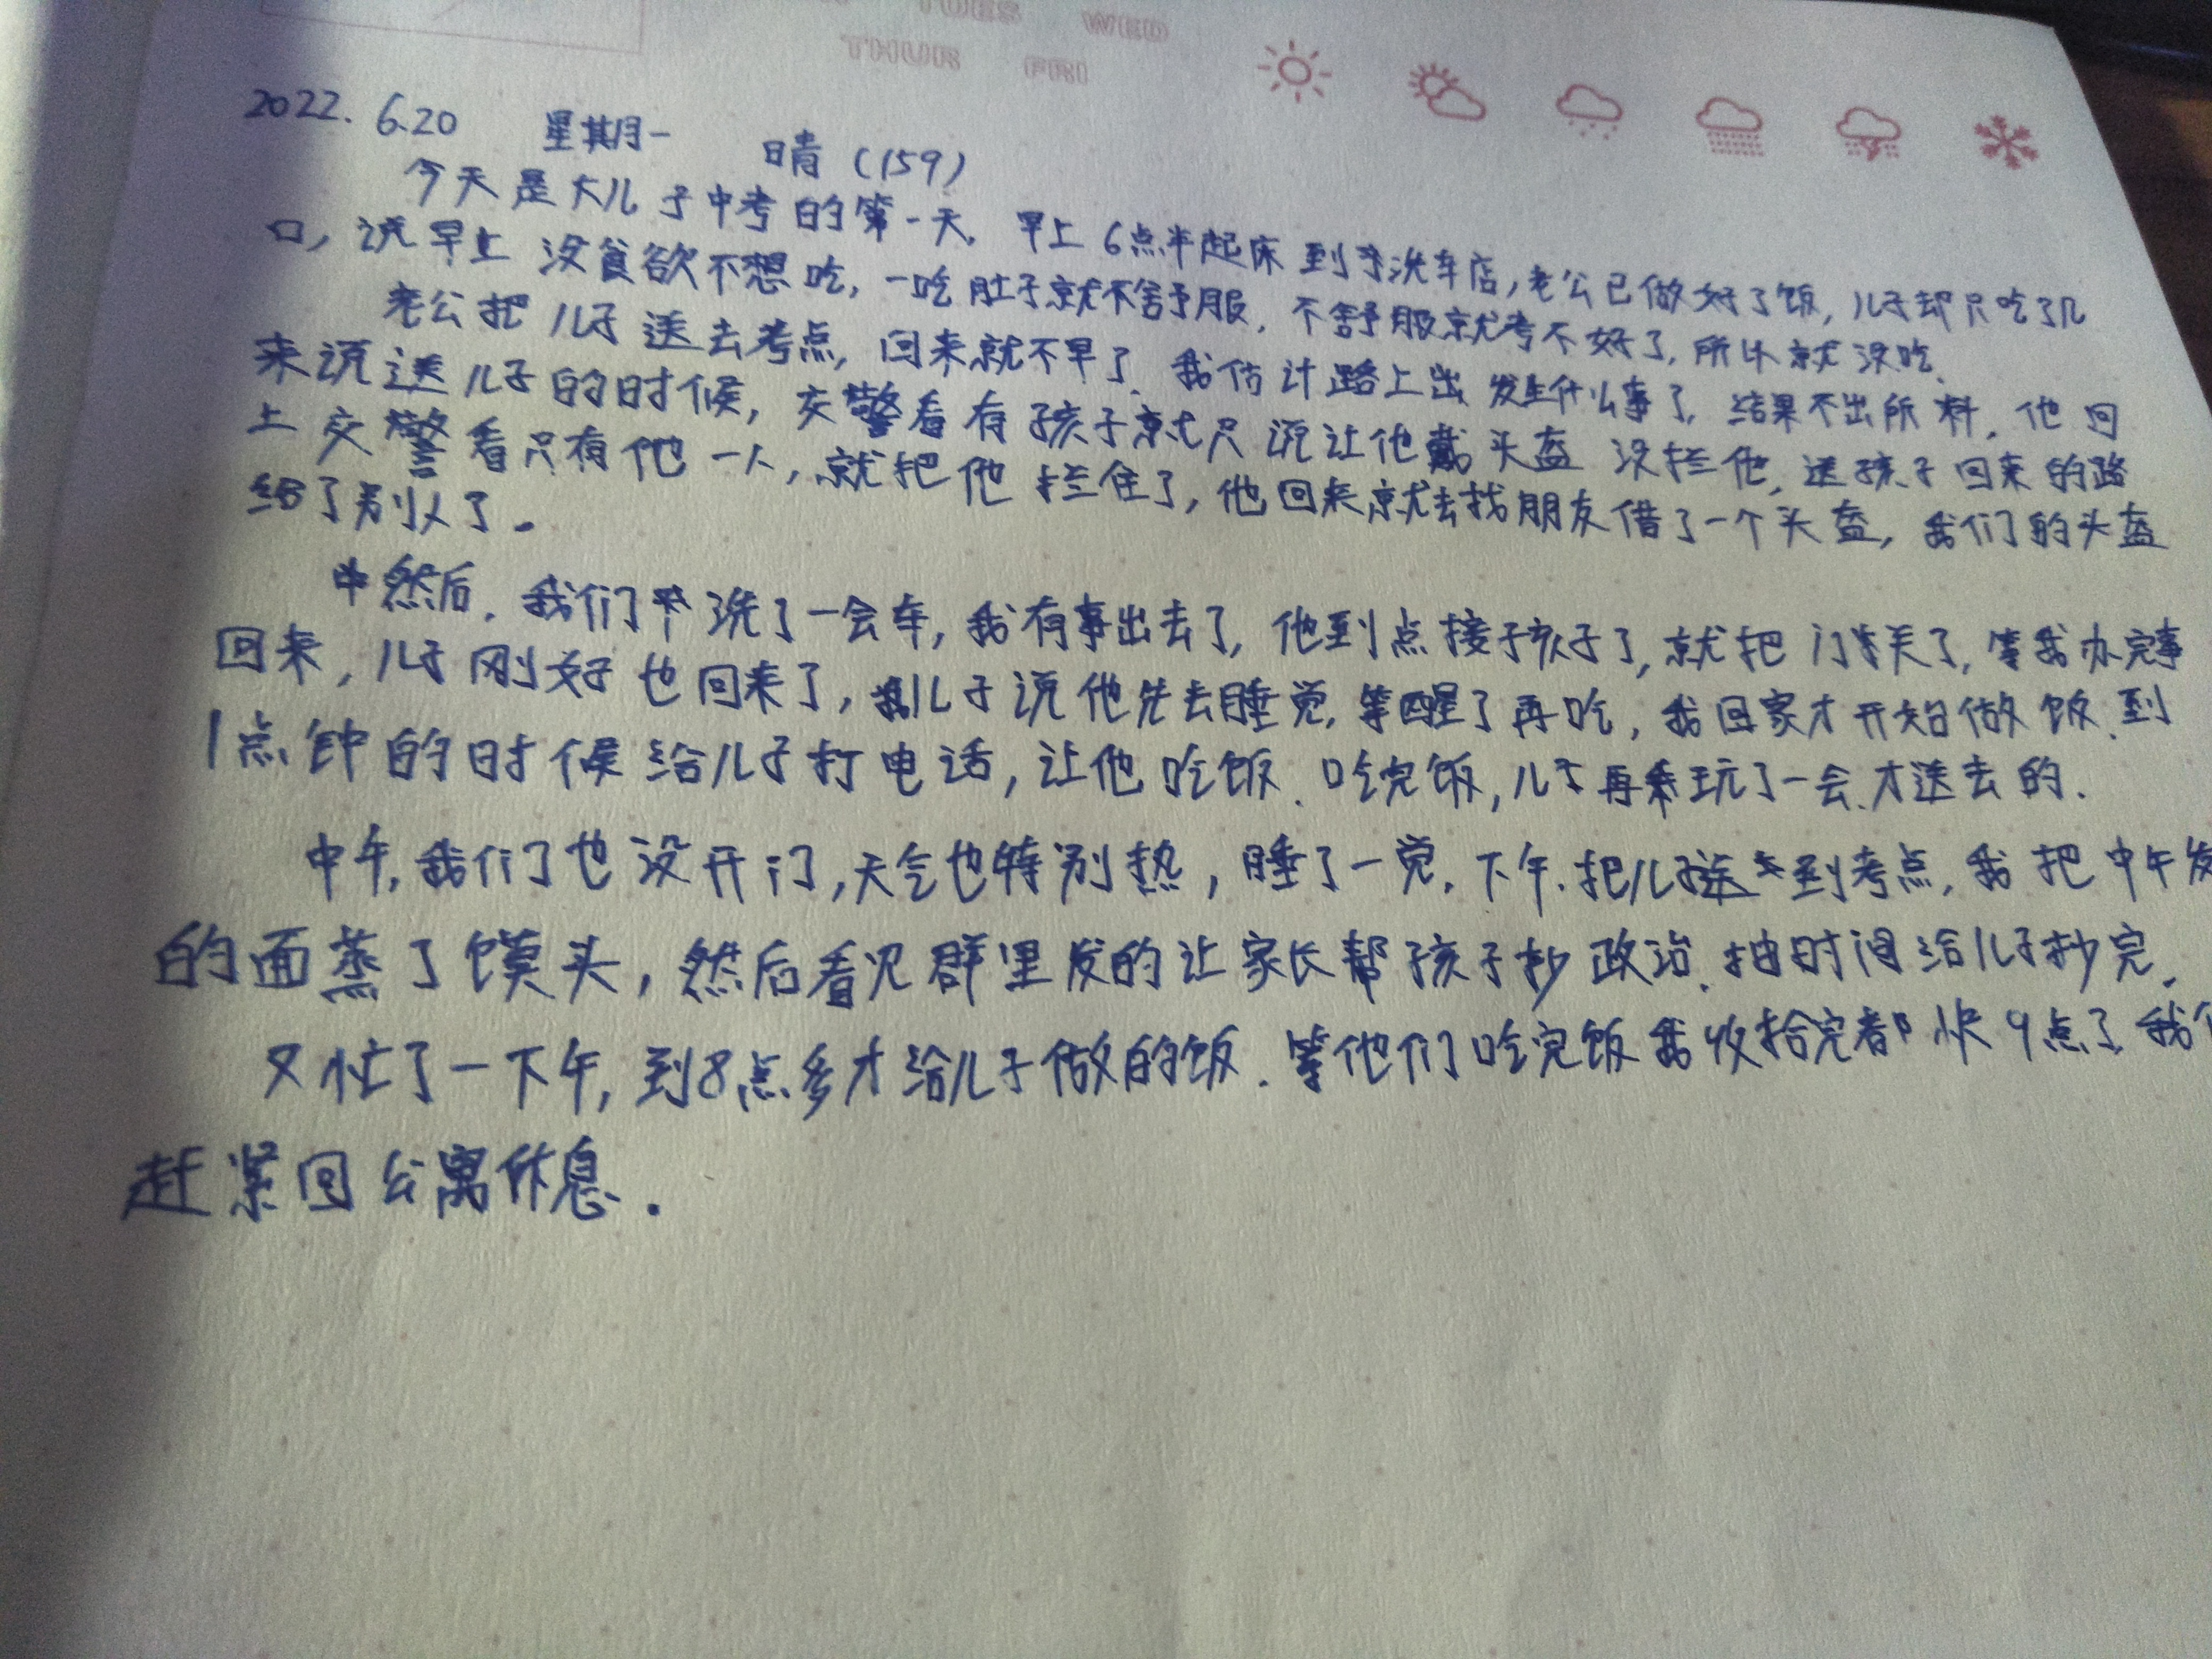 TUES WED
THUR FRI
2022. 6.20 星期一 晴（159）
今天是大儿子中考的第一天，早上6点半起床到洗车店，老公已做好了饭，儿子却只吃了几
口，说早上没食欲不想吃，一吃肚子就不舒服，不舒服就考不好了，所以就没吃。
老公把儿子送去考点，回来就不早了，我估计路上出发生什么事了，结果不出所料，他回
来说送儿子的时候，交警看有孩子就只说让他戴头盔没拦他，送孩子回来的路
上交警看只有他一人，就把他拦住了，他回来就去找朋友借了一个头盔，我们的头盔
给了别人了。
然后，我们洗了一会车，我有事出去了，他到点接孩子了，就把门关了，等我办完事
回来，儿子刚好也回来了，儿子说他先去睡觉，等醒了再吃，我回家才开始做饭，到
1点钟的时候给儿子打电话，让他吃饭．吃完饭，儿子再玩了一会．才送去的．
中午，我们也没开门，天气也特别热，睡了一觉．下午．把儿子送到考点，我把中午发
的面蒸了馍头，然后看见群里发的让家长帮孩子抄政治．抽时间给儿子抄完．
又忙了一下午，到8点多才给儿子做的饭．等他们吃完饭我收拾完都快9点了，我们
赶紧回公寓休息．